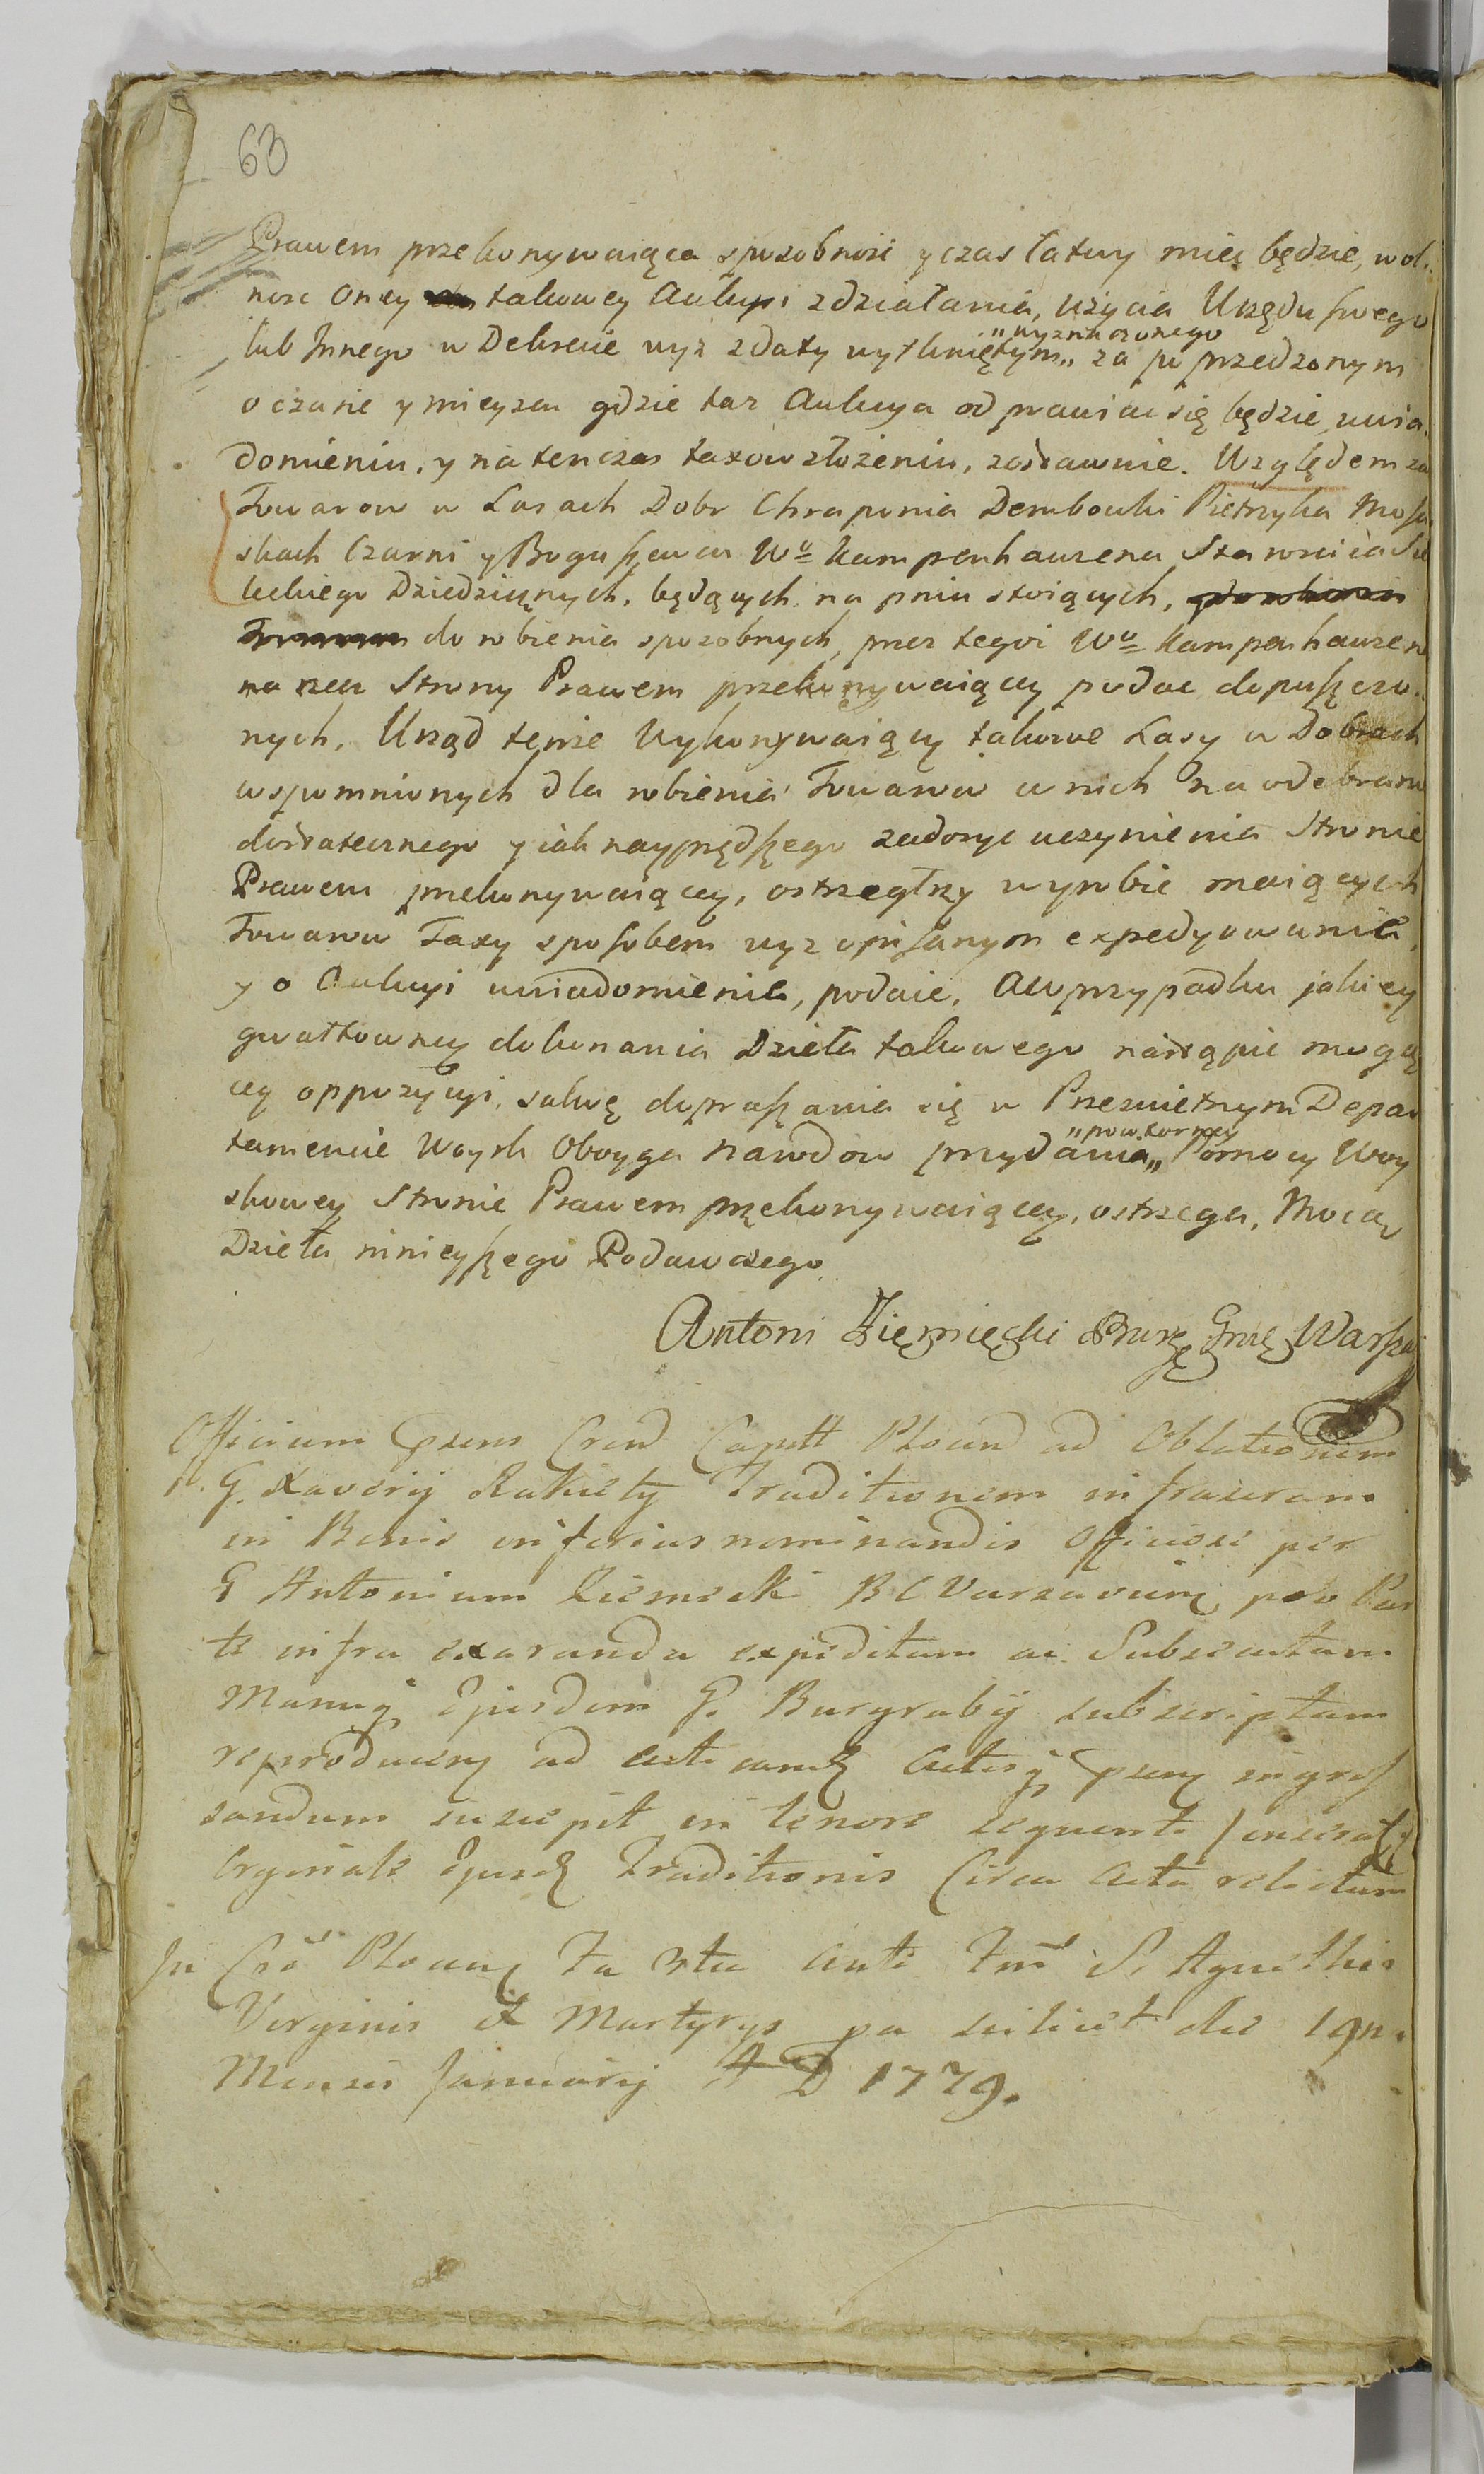 63
Prawem przekonywaiąca sposobność y czas łatwy mieć będzie, wol-
ność oney takowey Aukcyi zdziałania, użycia Urzędu swego
„wyznaczonego
lub Innego w Dekrecie wyż zdaty wytkniętym„ za poprzedzonym
o czasie y mieyscu gdzie taż Aukcya odprawiać się będzie uwia-
domieniu, y na tenczas taxow złożeniu, zostawuie. Względem za
Towarow w Lasach Dobr Chraponia Dembowki Pietrzyka
skach Czarni y Boguszewca Wo Kampenhauzena Starosta
leckiego Dziedzicznych, będących na pniu stoiących,
do robienia sposobnych, przez tegoż Wo Kampenhauzen
na rzecz Strony Prawem przekonywaiącey podać dopuszczo-
nych, Urząd tenże Wykonywaiący takowe Lasy w Dobrach
wspomnionych dla robienia Towarow w nich na odebranie
dostatecznego y iak nayprędszego zadosyć uczynienia Stronie
Prawem przekonywaiącey, ostrzegłszy wyrobić maiących
Towarow Taxy sposobem wyż opisanym expedyowanie,
y o Aukcyi uwiadomienie, podaie, A w przypadku jakiey
gwałtowney dokonania Dzieła takowego nastąpić mogą
cey oppozycyi, salwę dopraszania się w Prześwietnym Depar
„powtorney
tamencie Woysk Oboyga Narodow przydania„ Pomocy Woy
skowey Stronie Prawem przekonywaiącey, ostrzega, Mocą
Dzieła ninieyszego Podawczego
Antoni Ziemięcki Burg Grod Warsza
Officium praens Cren Capitt Plocen ad Oblationem
G. Xaverij Rakiety Traditionem infrascram
in Bonis inferius nominandis Officiose per
G Antonium Ziemecki B C Varsavien pro Par
te infra exaranda expeditam ac Subsecutam
Manuq Ejusdem G. Burgrabij subscriptam
reproducen ad acta eand Actisq praen ingros
sandum suscepit in tenore sequenti
Orginale Ejusd Traditionis Circa Acta relictum
In Cro Plocen Fa 3tia Ante Fm S. Agnethis
Virginis et Martyrys pa scilicet die 19n.
Mensis Januarij A D 1779.